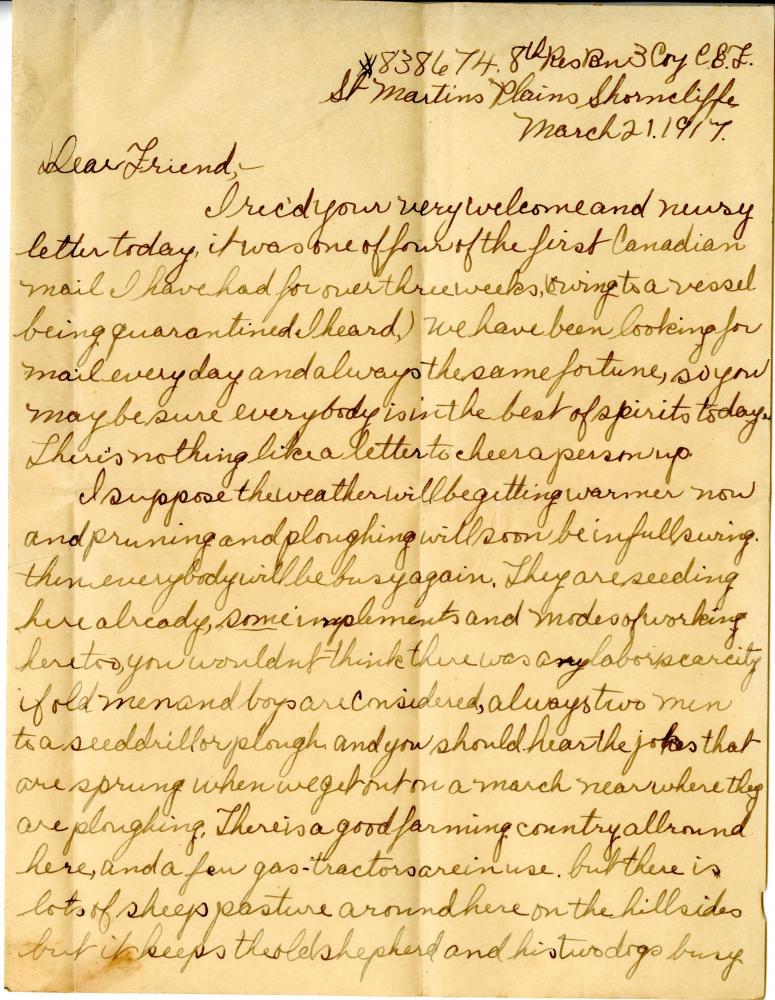 #838674. 8th Res Bn 3 Coy C.E.F.
St Martins Plains Shorncliffe
March 21. 1917.
Dear Friend,-
I rec'd your very welcome and newsy
letter today, it was one of four of the first Canadian
mail I have had for over three weeks, (owing to a vessel
being quarantined I heard,) we have been looking for
mail every day and always the same fortune, so you
may be sure everybody is in the best of spirits today.
There's nothing like a letter to cheer a person up.
I suppose the weather will be getting warmer now
and pruning and ploughing will soon be in full swing.
then everybody will be busy again. They are seeding
here already, some implements and modes of working
here too, you wouldn't think there was any labor scarcity
if old men and boys are considered, always two men
to a seed drill or plough and you should hear the jokes that
are sprung when we get out on a march near where they
are ploughing. There is a good farming country all round
here, and a few gas-tractors are in use. but there is
lots of sheep pasture around here on the hillsides
but it keeps the old shepherd and his two dogs busy